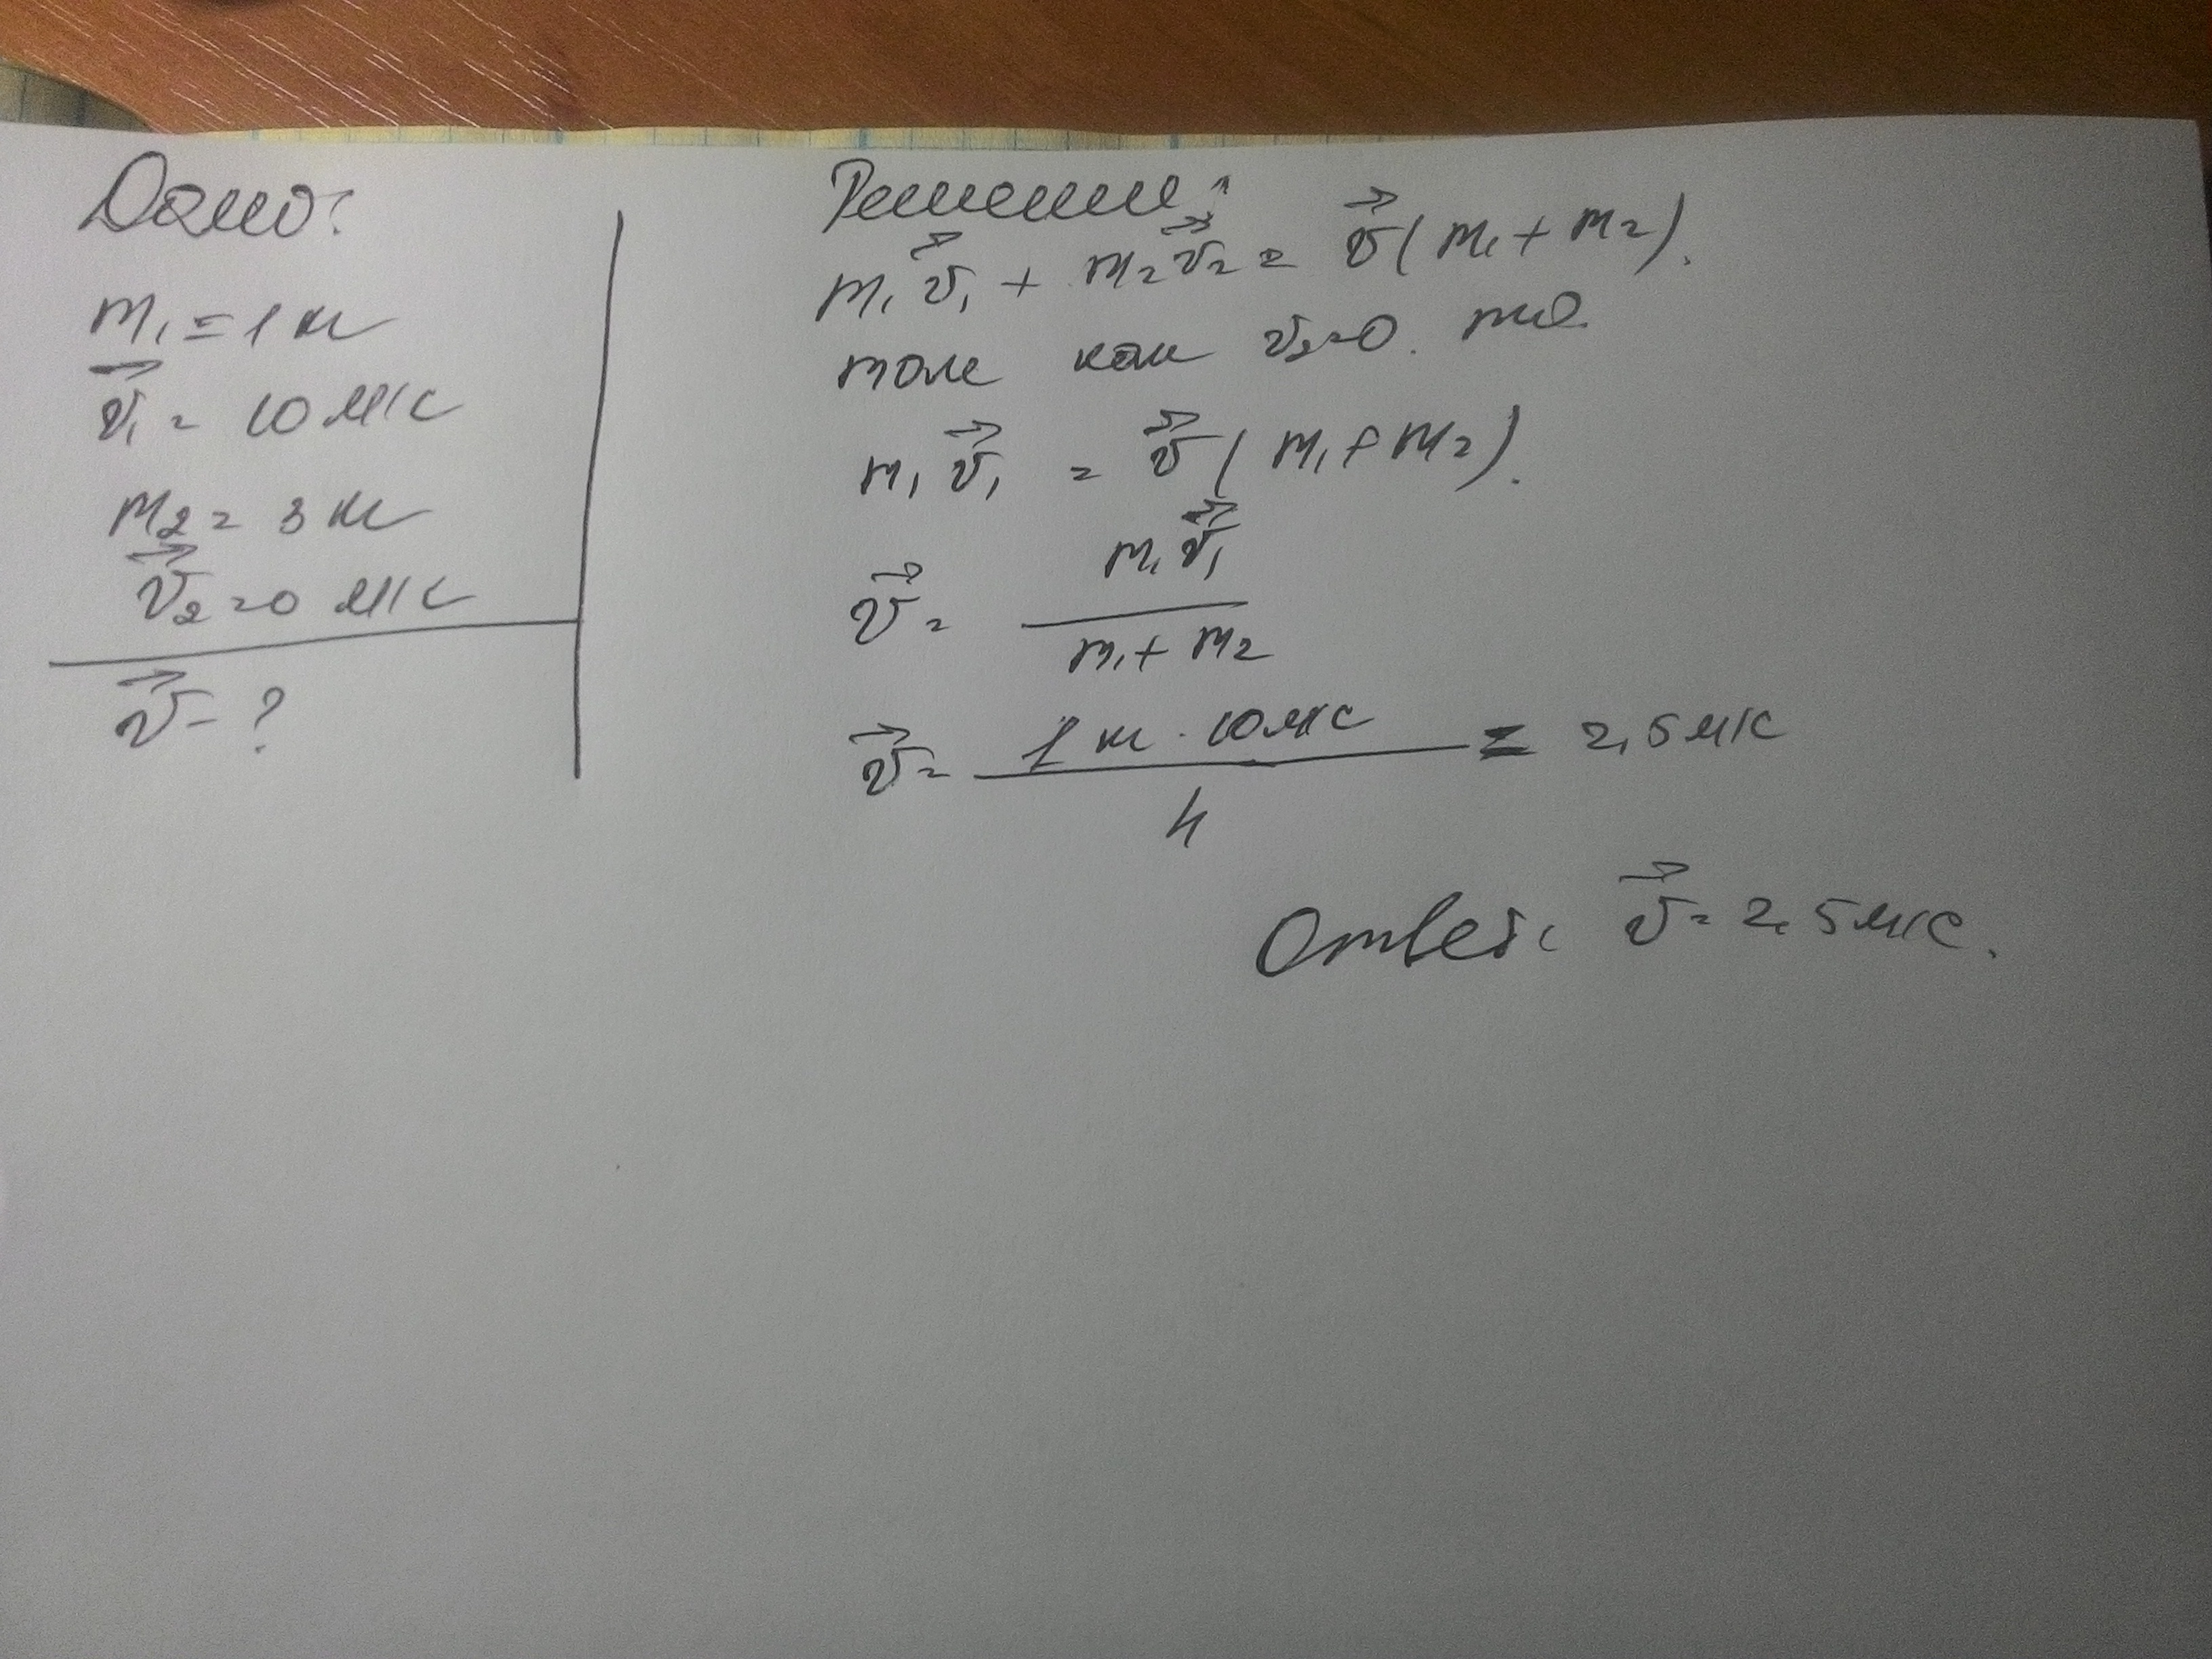 Дано:
m₁ = 1 кг
v⃗₁ = 10 м/с
m₂ = 3 кг
v⃗₂ = 0 м/с
v⃗ - ?
Решение:
m₁v⃗₁ + m₂v⃗₂ = v⃗(m₁ + m₂).
так как v₂=0. то
m₁v⃗₁ = v⃗(m₁ + m₂).
v⃗ = m₁v⃗₁ / m₁ + m₂
v⃗ = 1 кг · 10 м/с / 4 = 2,5 м/с
Ответ: v⃗ = 2,5 м/с.